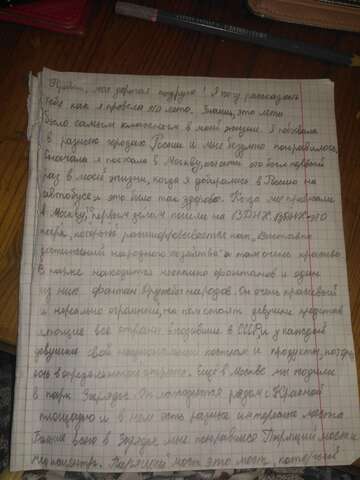 Привет, моя дорогая подруга! Я хочу рассказать
тебе как я провела это лето. Знаешь, это лето
было самым классным в моей жизни. Я побывала
в разных городах России и мне безумно понравилось.
Сначала я поехала в Москву, кстати это был первый
раз в моей жизни, когда я добиралась в Россию на
автобусе, и это было так здорово. Когда мы приехали
в Москву, первым делом пошли на ВДНХ. ВДНХ-это
парк, который расшифровывается как „Выставка
достижений народного хозяйства" и там очень красиво.
В парке находится несколько фонтанов и один
из них фонтан дружбы народов. Он очень красивый
и нереально огромный, на нём стоят девушки представ
ляющие все страны входившие в СССР и у каждой
девушки свой национальный костюм и продукты, которые
есть в определенной стране. Ещё в Москве мы ходили
в парк Зарядье. Он находится рядом с Красной
площадью и в нем есть разные интересные места.
Больше всего в Зарядье мне понравился Парящий мост и
медиацентр. Парящий мост это мост, который